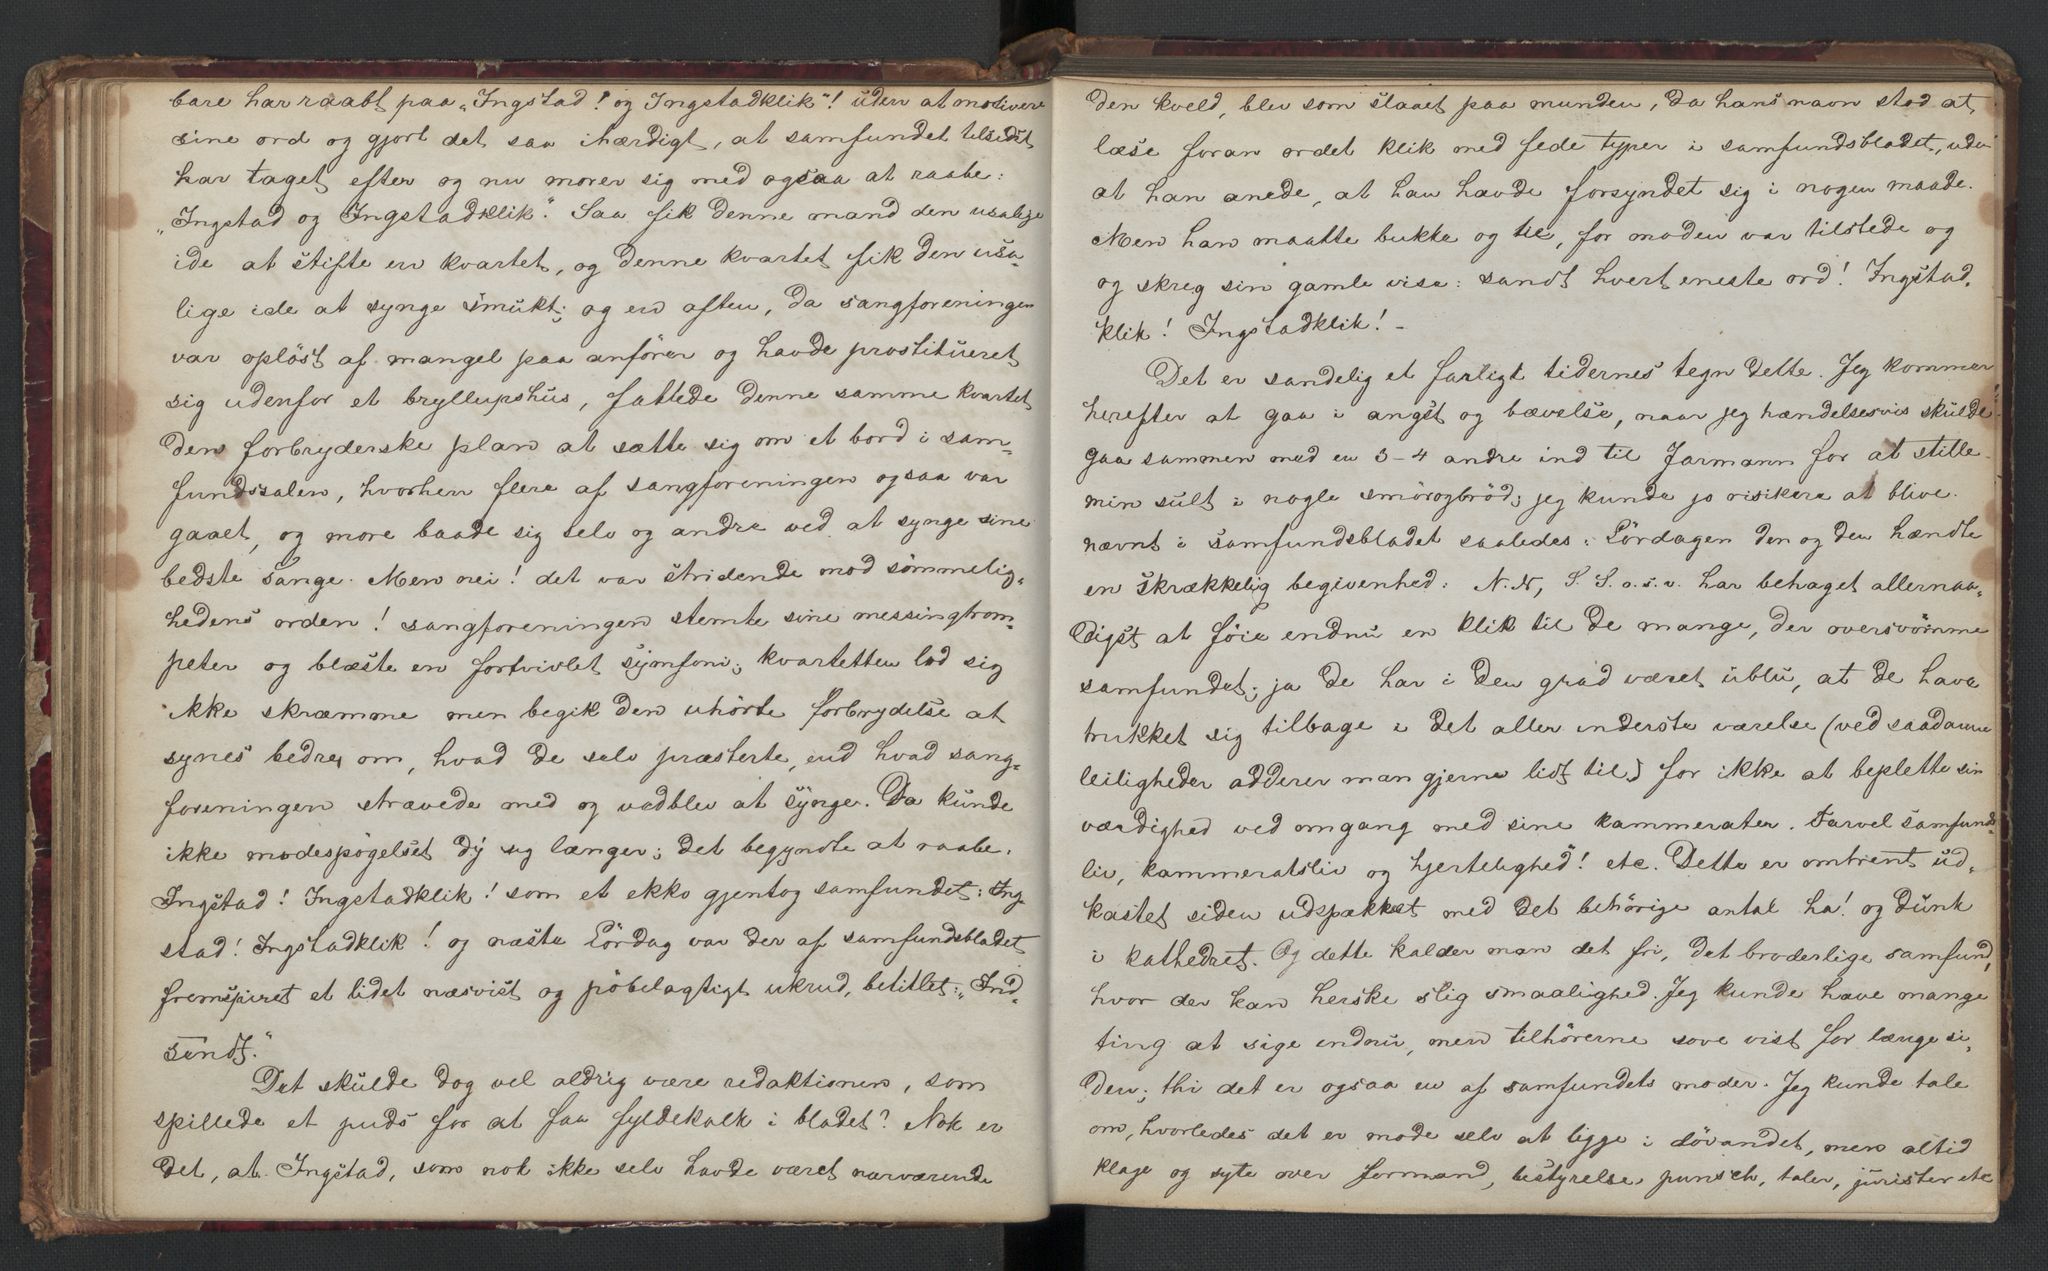 bare har raabt paa „Ingstad! og Ingstadklik"! uden at motivere
sine ord og gjort det saa ihærdigt, at samfundet tilsidst
har taget efter og nu morer sig med ogsaa at raabe:
„Ingstad og Ingstadklik". Saa fik denne mand den usalige
ide at stifte en kvartet, og denne kvartet fik den usa-
lige ide at synge smukt; og en aften, da sangforeningen
var opløst af mangel paa anfører og havde prostitueret
sig udenfor et bryllupshus, fattede denne samme kvartet
den forbryderske plan at sætte sig om et bord i sam-
fundssalen, hvorhen flere af sangforeningen ogsaa var
gaaet, og more baade sig selv og andre ved at synge sine
bedste sange. Men nei! det var stridende mod sømmelig-
hedens orden! sangforeningen stemte sine messingtrom-
peter og blæste en fortvivlet symfoni; kvartetten lod sig
ikke skræmme men begik den uhørte forbrydelse at
synes bedre om, hvad de selv præsterte, end hvad sang-
foreningen strævede med og vedblev at synge. Da kunde
ikke modespøgelset dy sig længer; det begyndte at raabe:
Ingstad! Ingstadklik! som et ekko gjentog samfundet: Ing-
stad! Ingstadklik! og næste Lørdag var der af samfundsbladet
fremspiret et lidet næsvist og pøbelagtigt ukrud, betitlet: „Ind-
sendt."
Det skulde dog vel aldrig være redaktionen, som
spillede et puds for at faa fyldekalk i bladet? Nok er
det, at Ingstad, som nok ikke selv havde været nærværende
den kveld, blev som slaaet paa munden, da hans navn stod at
læse foran ordet klik med fede typer i samfundsbladet, uden
at han anede, at han havde forsyndet sig i nogen maade.
Men han maatte bukke og tie, for moden var tilstede og
og skreg sin gamle vise: sandt hvert eneste ord! Ingstad-
klik! Ingstadklik! –
Det er sandelig et farligt tidernes tegn dette. Jeg kommer
herefter at gaa i angst og bævelse, naar jeg hændelsesvis skulde
gaa sammen med en 3-4 andre ind til Jarmann for at stille
min sult i nogle smørogbrød; jeg kunde jo risikere at blive
nævnt i samfundsbladet saaledes: Lørdagen den og den hændte
en skrækkelig begivenhed: N.N, S. S. o. s. v. har behaget allernaa-
digst at føie endnu en klik til de mange, der oversvømme
samfundet; ja de har i den grad været ublu, at de have
trukket sig tilbage i det aller inderste værelse (ved saadanne
leiligheder adderer man gjerne lidt til) for ikke at beplette sin
værdighed ved omgang med sine kammerater. Farvel samfunds-
liv, kammeratsliv og hjertelighed! etc. Dette er omtrent ud-
kastet siden udspækket med det behørige antal ha! og dunk
i kathedret. Og dette kalder man det fri, det broderlige samfund,
hvor der kan herske slig smaalighed. Jeg kunde have mange
ting at sige endnu, men tilhørerne sove vist for længe si-
den; thi det er ogsaa en af samfundets moder. Jeg kunde tale
om, hvorledes det er mode selv at ligge i døvandet, men altid
klage og syte over formand, bestyrelse, punsch, taler, jurister etc